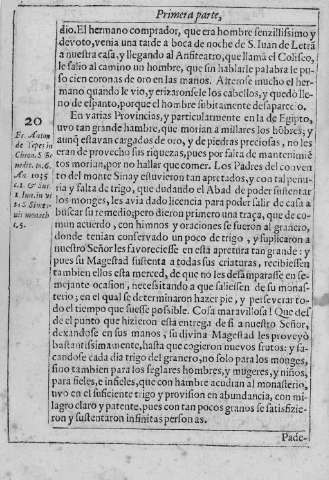 Primera parte,
dio. El hermano comprador, que era hombre senzillissimo y
devoto, venia una tarde a boca de noche de S. Iuan de Letrã
a nuestra casa, y llegando al Anfiteatro, que llamã el Coliseo,
le salio al camino un hombre, que sin hablarle palabra le pu-
so cien coronas de oro en las manos. Alterose mucho el her-
mano quando le vio, y erizaronsele los cabellos, y quedò lle-
no de espanto, porque el hombre subitamente desaparecio.
20
Fr. Anton.
de Yepes in
Chron. S. Be
nedict.
An. 1035
En varias Provincias, y particularmente en la de Egipto,
uvo tan grande hambre, que morian a millares los hõbres; y
aunq̃ estavan cargados de oro, y de piedras preciosas, no les
eran de provecho sus riquezas, pues por falta de mantenimiẽ
tos morian, por no hallar que comer. Los Padres del conven-
to del monte Sinay estuvieron tan apretados, y con tal penu-
ria y falta de trigo, que dudando el Abad de poder sustentar
los monges, les avia dado licencia para poder salir de casa a
buscar su remedio; pero dieron primero una traça, que de co-
mun acuerdo, con himnos y oraciones se fueron al granero,
donde tenian conservado un poco de trigo, y suplicaron a
nuestro Señor les favoreciesse en esta apretura tan grande: y
pues su Magestad sustenta a todas sus criaturas, recibiessen
tambien ellos esta merced, de que no les desamparasse en se-
mejante ocasion, necesitando a que saliessen de su monas-
terio; en el qual se determinaron hazer pie, y perseverar to-
do el tiempo que fuesse possible. Cosa maravillosa! Que des
de el punto que hizieron esta entrega de si a nuestro Señor,
dexandose en sus manos, su divina Magestad les proveyò
bastantissimamente, hasta que cogieron nuevos frutos: y sa-
candose cada dia trigo del granero, no solo para los monges,
sino tambien para los seglares hombres, y mugeres, y niños,
para fieles, e infieles, que con hambre acudian al monasterio,
uvo en el suficiente trigo y provision en abundancia, con mi-
lagro claro y patente, pues con tan pocos granos se satisfizie-
ron y sustentaron infinitas personas.
Pade-